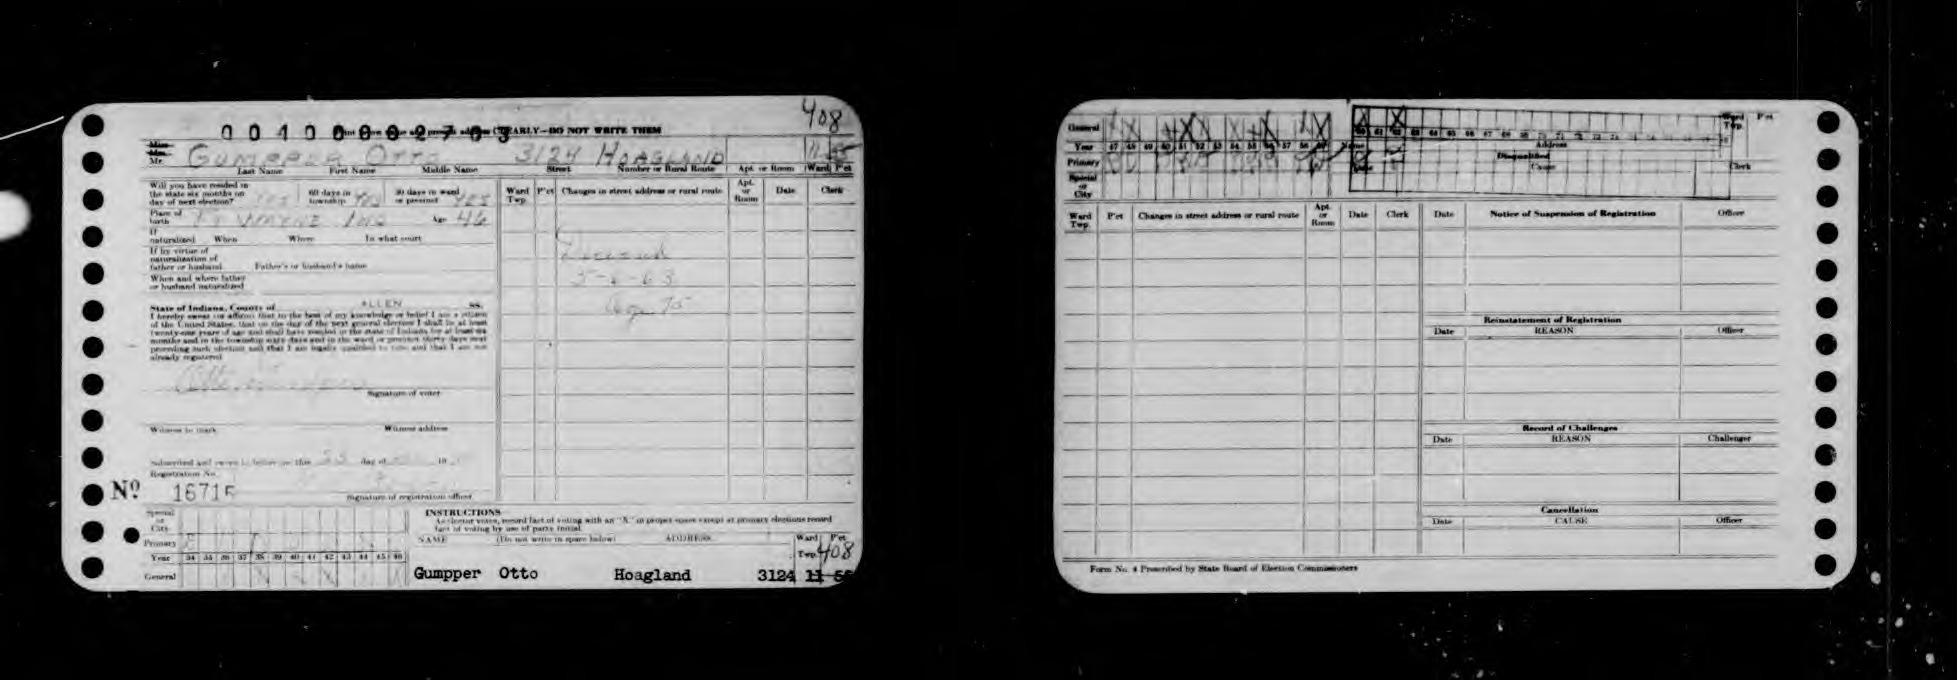 408
0 0 1 0 0 0 0 2 7 0 3
CLEARLY—DO NOT WRITE THEM
Mr. GUMPPER OTTO 3124 HOAGLAND
Last Name First Name Middle Name Street Number or Rural Route Apt. or Room Ward P'ct
Will you have resided in
the state six months on
day of next election? YES
60 days in
township YES
30 days in ward
or precinct YES
Place of
birth FT WAYNE IND Age 46
If
naturalized When Where In what court
If by virtue of
naturalization of
father or husband Father's or husband's name
When and where father
or husband naturalized
State of Indiana, County of ALLEN SS.
I hereby swear (or affirm) that to the best of my knowledge or belief I am a citizen
of the United States, that on the day of the next general election I shall be at least
twenty-one years of age and shall have resided in the state of Indiana for at least six
months and in the township sixty days and in the ward or precinct thirty days next
preceding such election and that I am legally qualified to vote and that I am not
already registered
Signature of voter
Witness to mark Witness address
Subscribed and sworn to before me this day of 19
Registration No.
No 16715
Signature of registration officer
Ward
Twp. P'ct Changes in street address or rural route Apt.
or
Room Date Clerk
Deceased
3-6-63
Age 75
Special
or
City
Primary
Year 34 35 36 37 38 39 40 41 42 43 44 45 46
General
INSTRUCTIONS
As elector votes, record fact of voting with an "X" in proper space except at primary elections record
fact of voting by use of party initial.
NAME (Do not write in space below) ADDRESS Ward P'ct
Twp. 408
Gumpper Otto Hoagland 3124 11
General
Year 47 48 49 50 51 52 53 54 55 56 57 58 59
Primary
Special
or
City
60 61 62 63 64 65 66 67 68 69 70 71 72 73 74
Ward
Twp. P'ct
Name Address
Disqualified
Date Cause Clerk
Ward
Twp. P'ct Changes in street address or rural route Apt.
or
Room Date Clerk
Date Notice of Suspension of Registration Officer
Reinstatement of Registration
Date REASON Officer
Record of Challenges
Date REASON Challenger
Cancellation
Date CAUSE Officer
Form No. 4 Prescribed by State Board of Election Commissioners